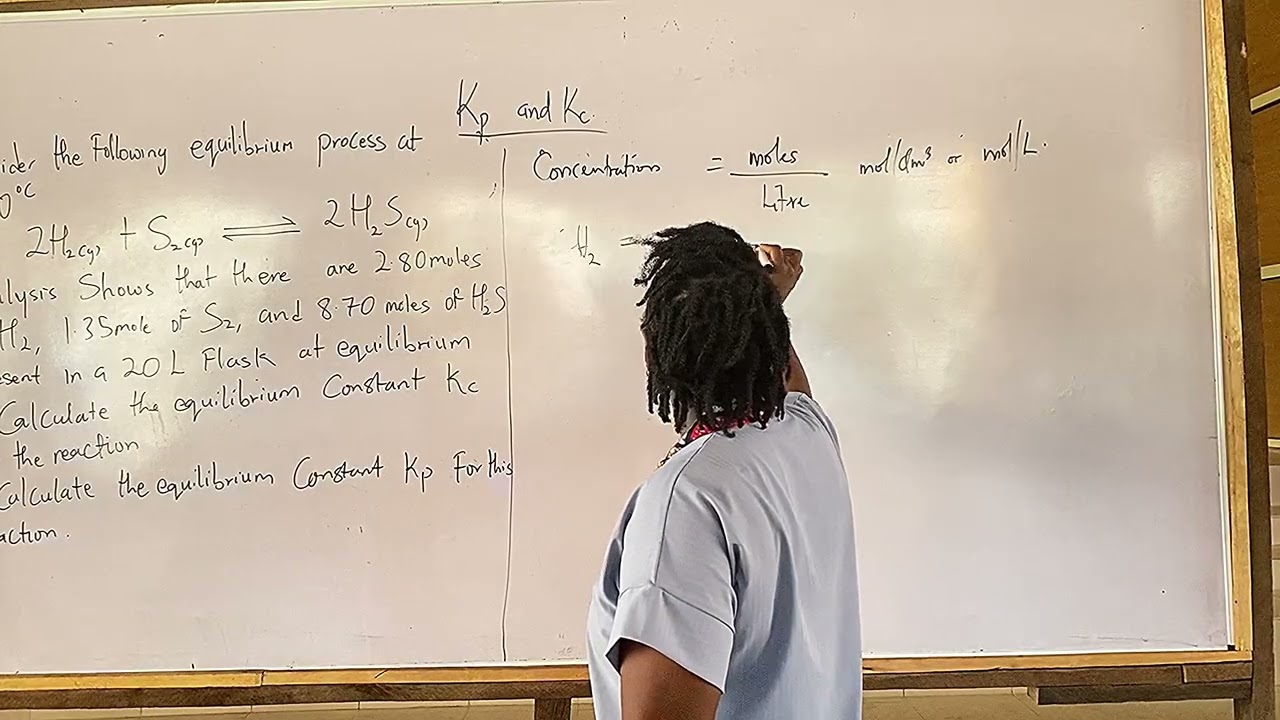 Kp and Kc
ider the Following equilibrium process at
0°C
2H₂(g) + S₂(g) ⇌ 2H₂S(g)
alysis Shows that there are 2.80moles
H₂, 1.35mole of S₂, and 8.70 moles of H₂S
esent in a 20L Flask at equilibrium
Calculate the equilibrium Constant Kc
the reaction
Calculate the equilibrium Constant Kp For this
action.
Concentration = moles / Litre mol/dm³ or mol/L.
H₂ =